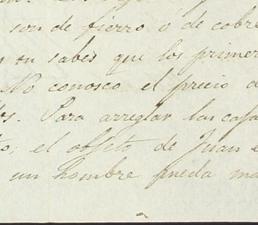 son de fierro o de cobre
tu sabes que los primer
No conosco el precio d
Para arreglar las casa
el objeto de Juan e
un hombre pueda ma